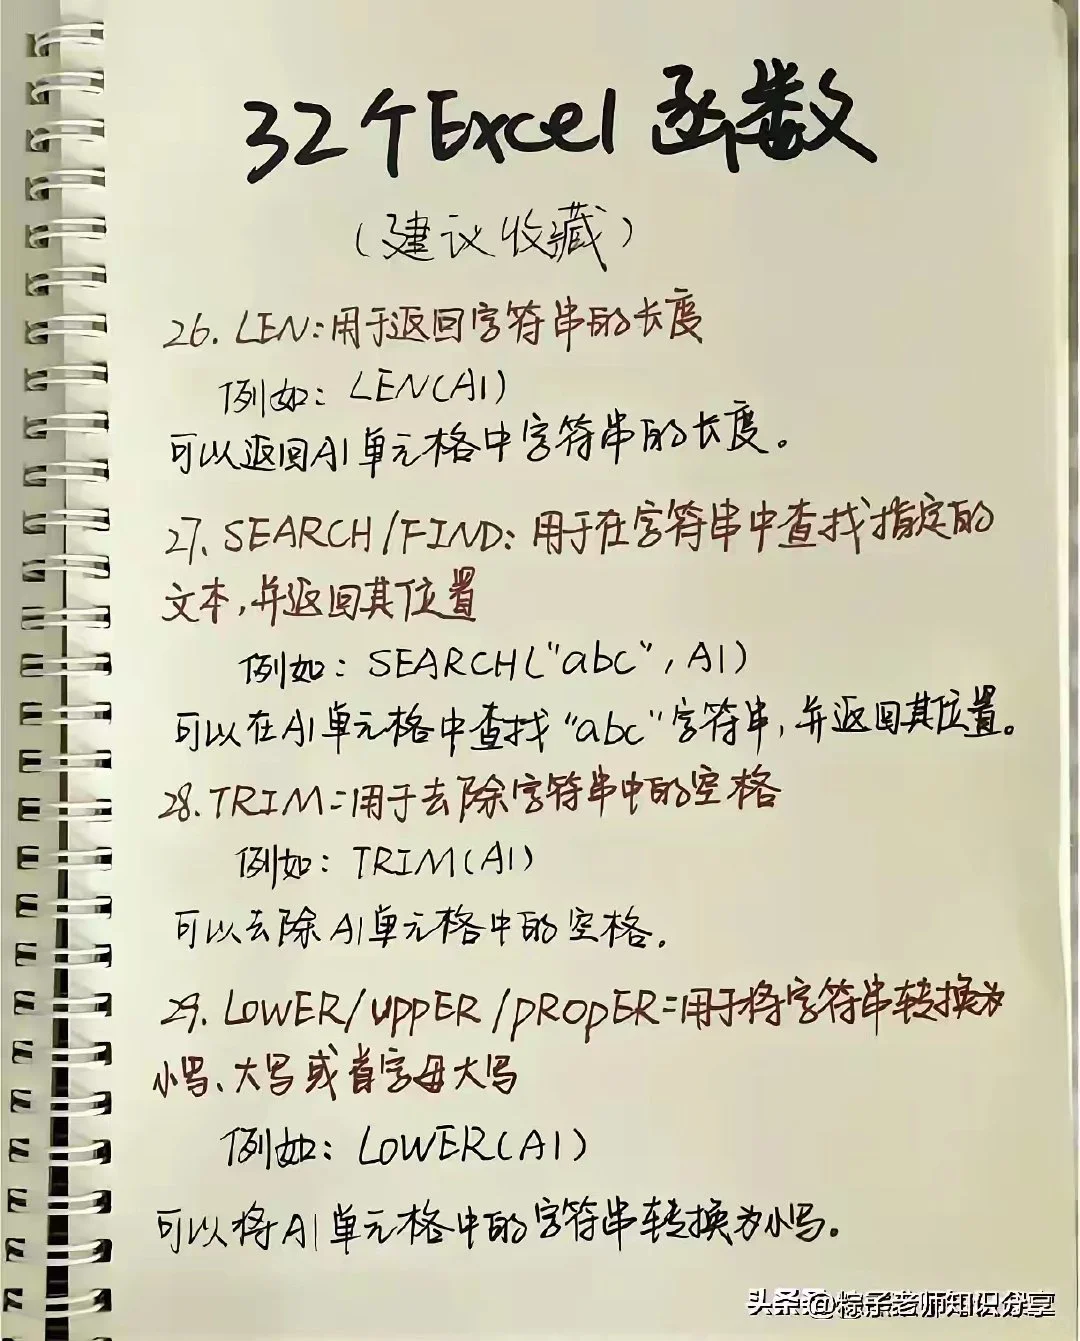 32个Excel函数
(建议收藏)
26. LEN:用于返回字符串的长度
例如: LEN(A1)
可以返回A1单元格中字符串的长度。
27. SEARCH/FIND: 用于在字符串中查找指定的
文本,并返回其位置
例如: SEARCH("abc", A1)
可以在A1单元格中查找"abc"字符串,并返回其位置。
28. TRIM:用于去除字符串中的空格
例如: TRIM(A1)
可以去除A1单元格中的空格.
29. LOWER/UPPER/PROPER:用于将字符串转换为
小写、大写或首字母大写
例如: LOWER(A1)
可以将A1单元格中的字符串转换为小写。
头条 @粽子老师知识分享